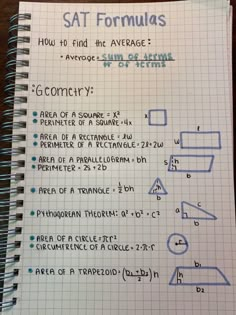 SAT Formulas
HOW to find the AVERAGE:
• Average= sum of terms
# of terms
:Geometry:
• AREA OF A SQUARE = x²
• PERIMETER OF A SQUARE=4x
x
• AREA OF A RECTANGLE = lw
• PERIMETER OF A RECTANGLE=2l+2w
l
w
• AREA OF A PARALLELOGRAM=bh
• PERIMETER = 2s+2b
s
h
b
• AREA OF A TRIANGLE = 1/2 bh
h
b
• PYTHAGOREAN THEOREM: a²+b²=c²
a
c
b
• AREA OF A CIRCLE=πr²
• CIRCUMFERENCE OF A CIRCLE=2·π·r
r
• AREA OF A TRAPEZOID=(b₁+b₂/2)h
b₁
h
b₂